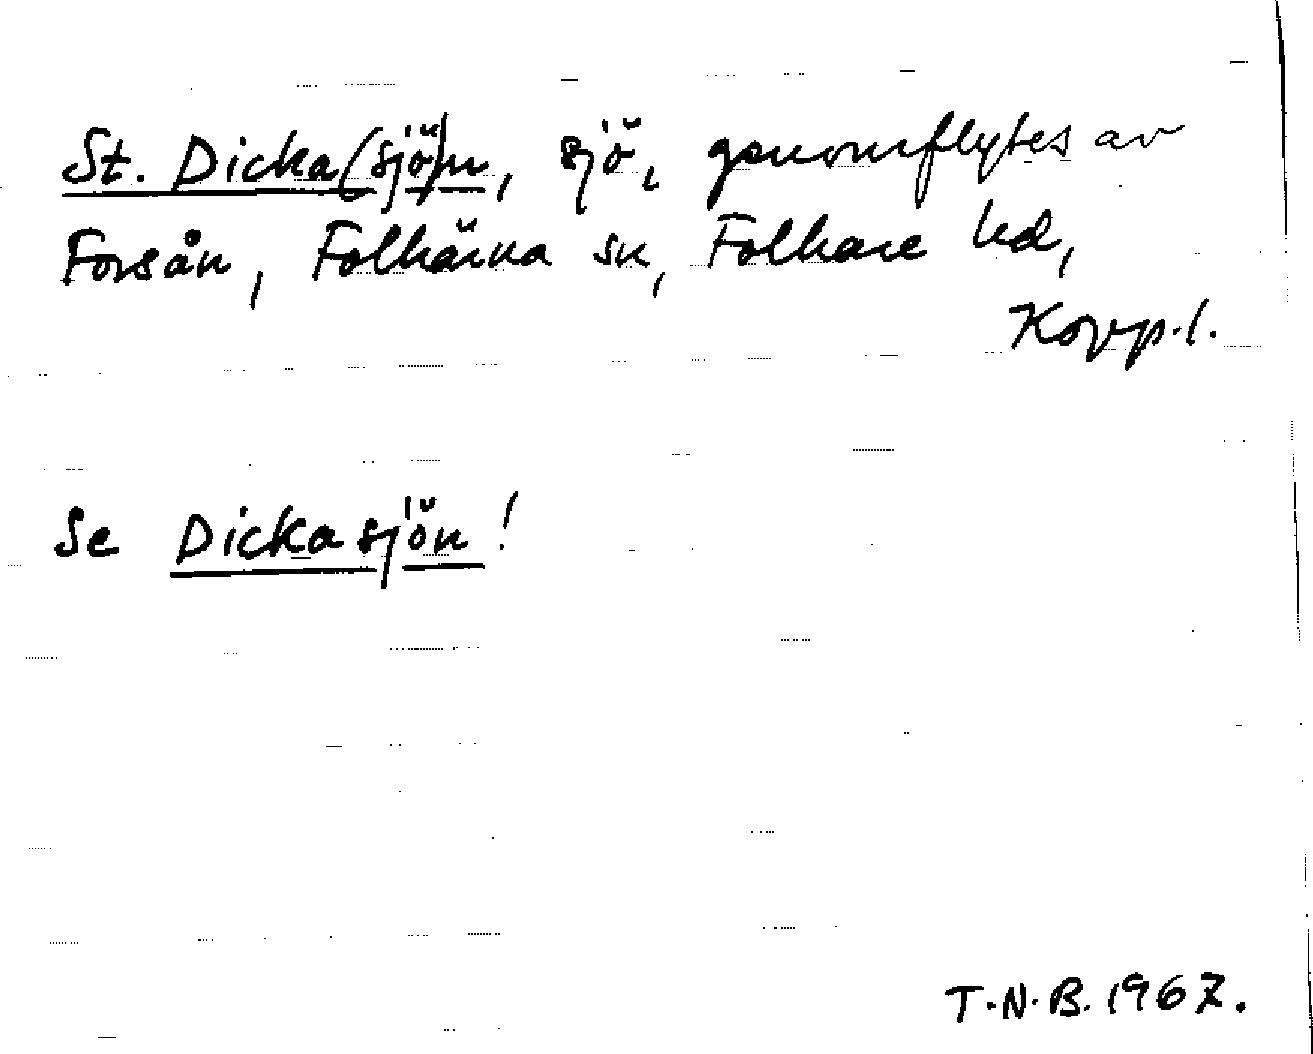 St. Dicka(sjö)n, sjö, genomflytes av
Forsån, Folkärna sn, Folkare hd,
Kopp.l.
Se Dickasjön!
T.N.B. 1967.